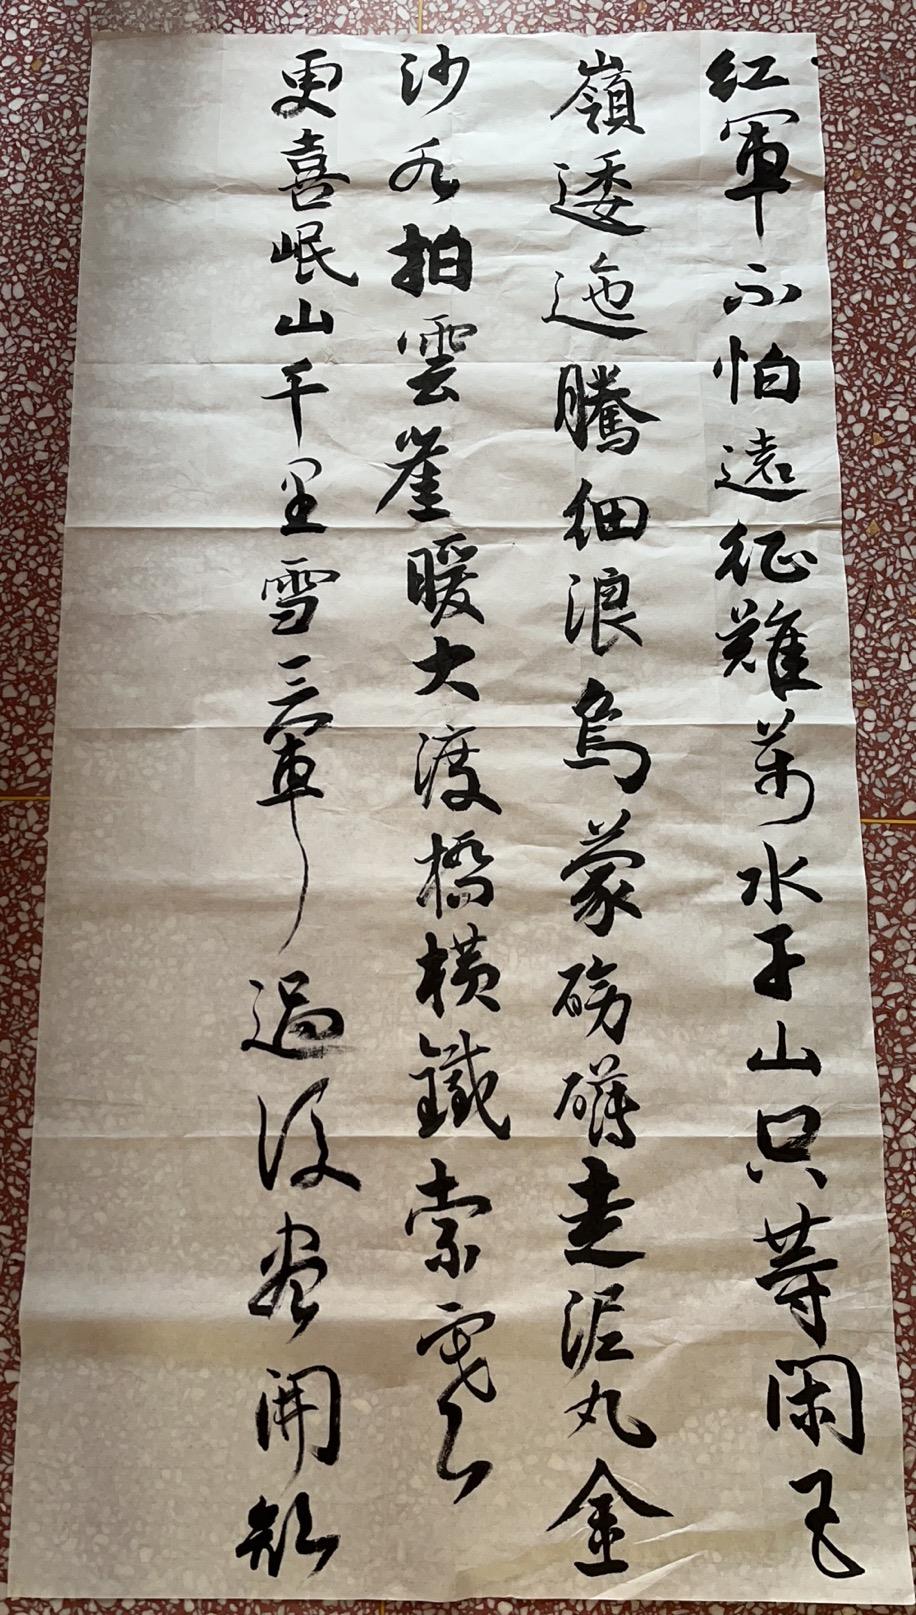 紅軍不怕遠征難萬水千山只等閑五
嶺逶迤騰細浪烏蒙磅礴走泥丸金
沙水拍雲崖暖大渡橋橫鐵索寒
更喜岷山千里雪三軍過後盡開顏